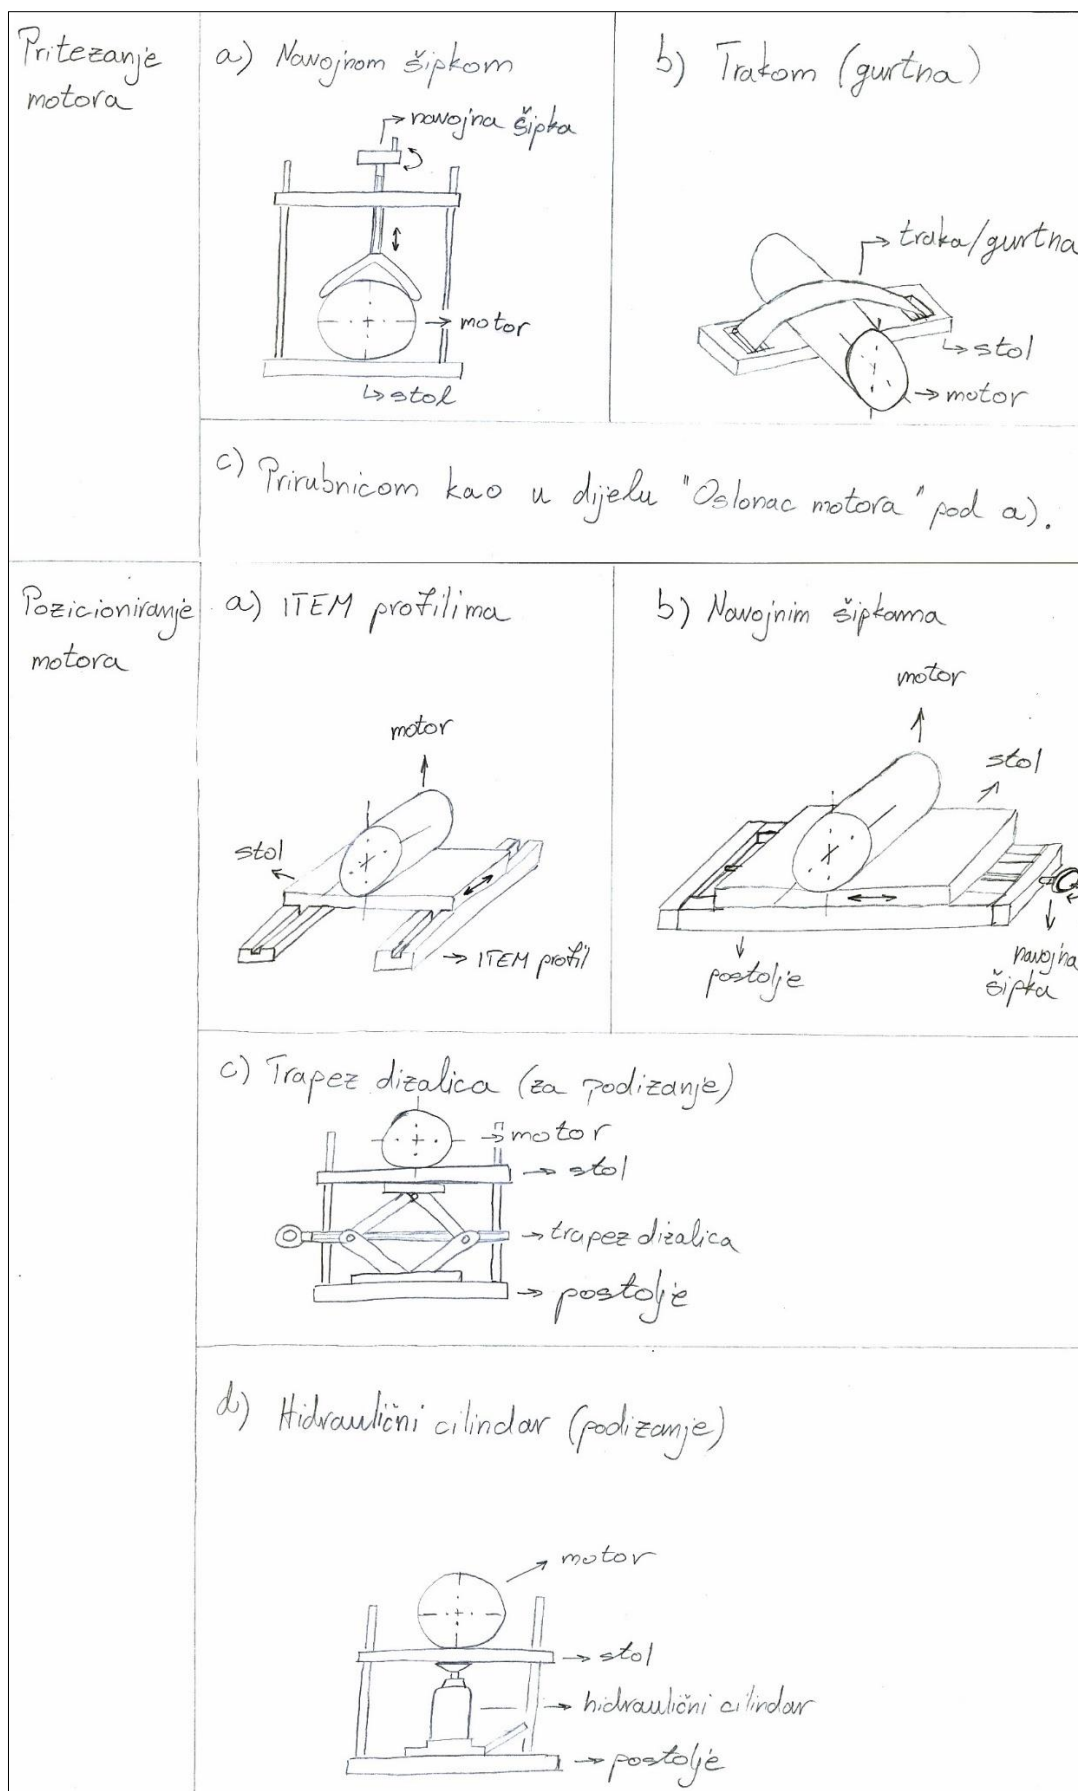 Pritezanje
motora
a) Navojnom šipkom
navojna šipka
motor
stol
b) Trakom (gurtna)
traka/gurtna
stol
motor
c) Prirubnicom kao u dijelu "Oslonac motora" pod a).
Pozicioniranje
motora
a) ITEM profilima
motor
stol
ITEM profil
b) Navojnim šipkama
motor
stol
postolje
navojna
šipka
c) Trapez dizalica (za podizanje)
motor
stol
trapez dizalica
postolje
d) Hidraulični cilindar (podizanje)
motor
stol
hidraulični cilindar
postolje